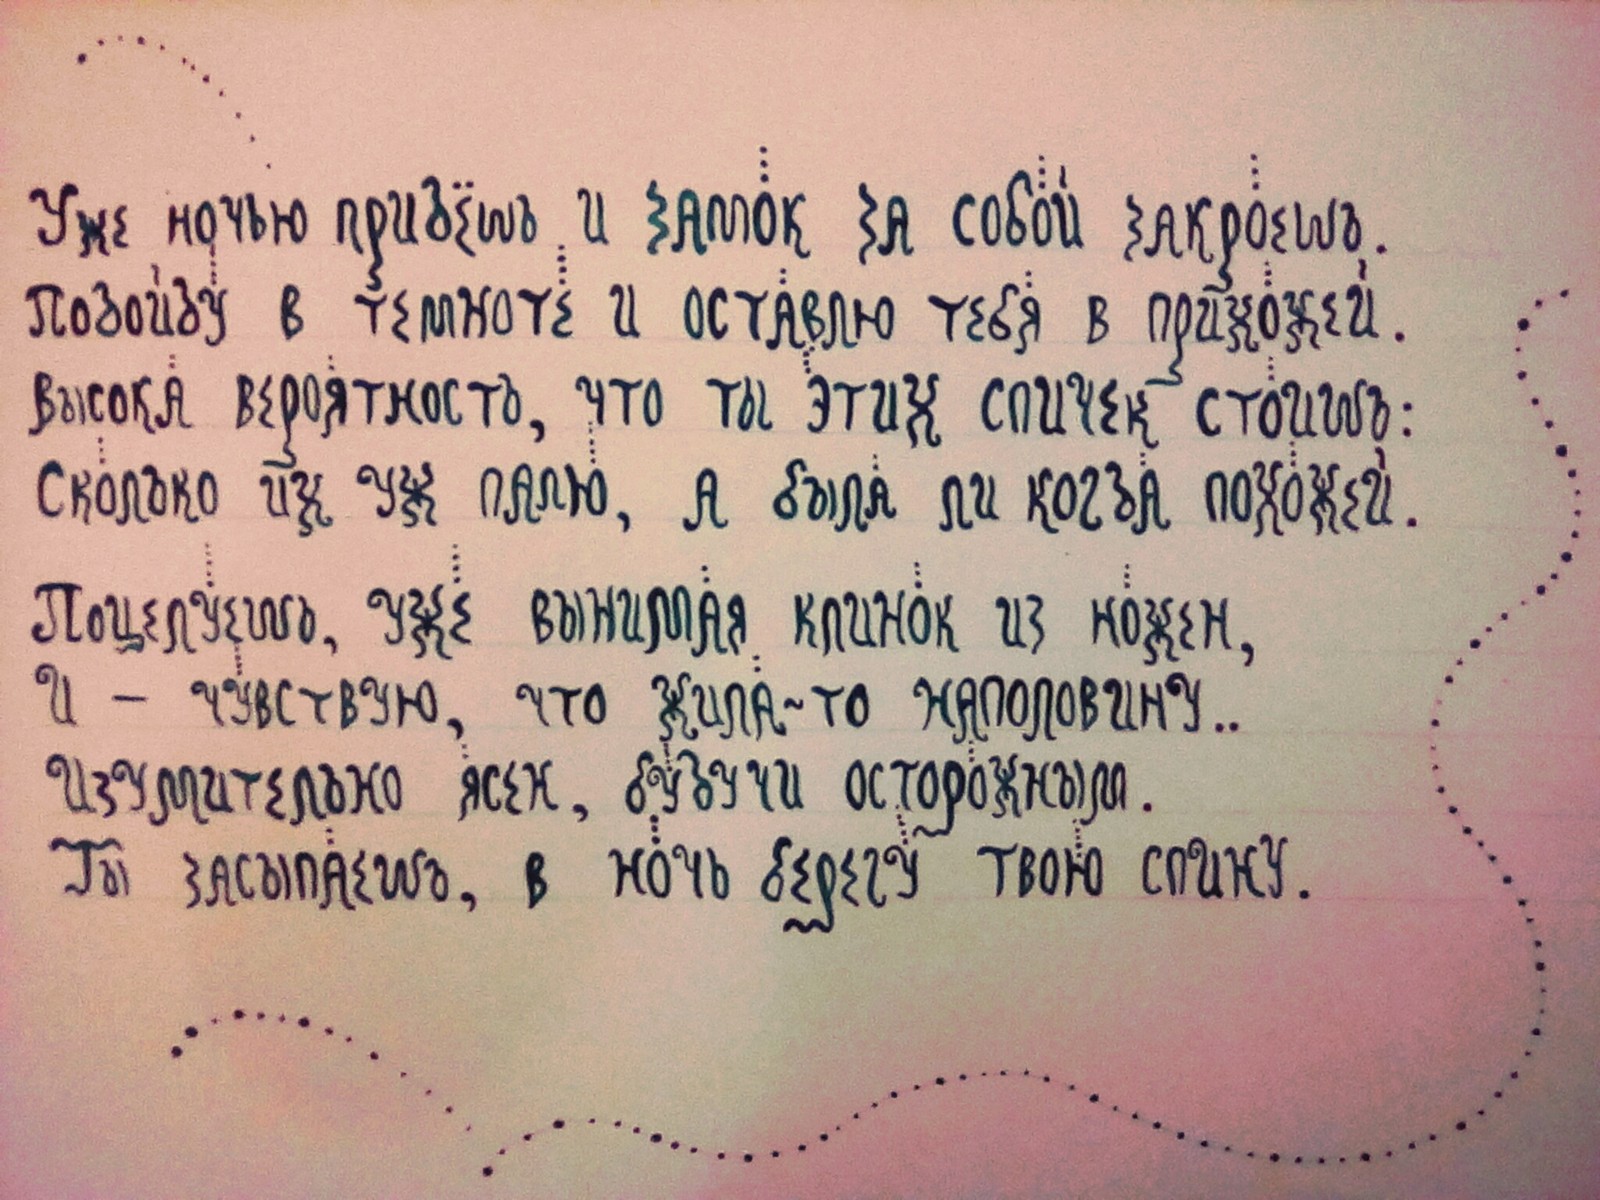 Уже ночью придёшь и замок за собой закроешь.
Подойду в темноте и оставлю тебя в прихожей.
Высока вероятность, что ты этих спичек стоишь:
Сколько их уж палю, а была ли когда похожей.
Поцелуешь, уже вынимая клинок из ножен,
И – чувствую, что жила~то наполовину..
Изумительно ясен, будучи осторожным.
Ты засыпаешь, в ночь берегу твою спину.